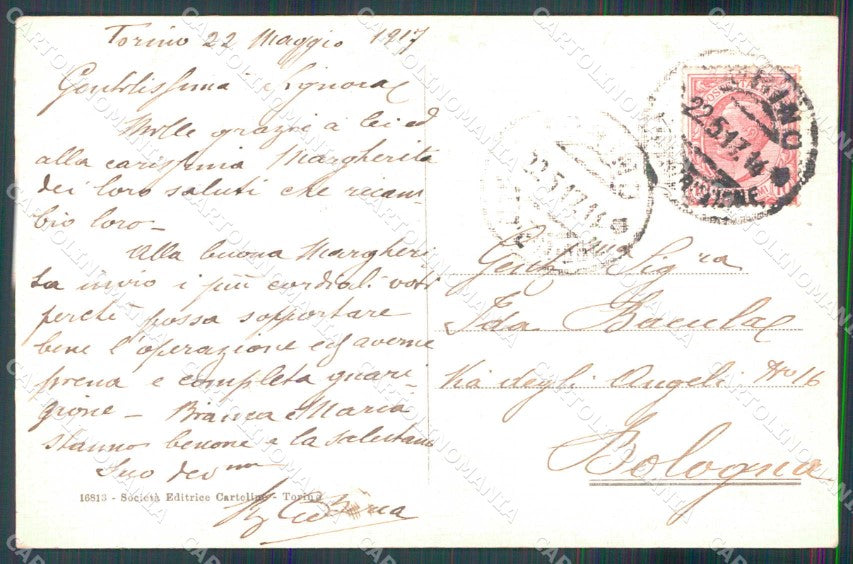 Torino 22 Maggio 1917
Gentilissima Signora
Mille grazie a lei ed
alla carissima Margherita
dei loro saluti che ricam
bio loro -
Alla buona Margheri
ta invio i più cordiali voti
perchè possa sopportare
bene l'operazione ed averne
piena e completa guari-
gione - Bianca e Maria
stanno benone e la salutano
Suo dev mo
16813 - Società Editrice Cartoline - Torino
TORINO
22.5.17.14
22.5.17.14
Gent ma Sig ra
Ida
Via degli Angeli No 16
Bologna
CARTOLINOMANIA